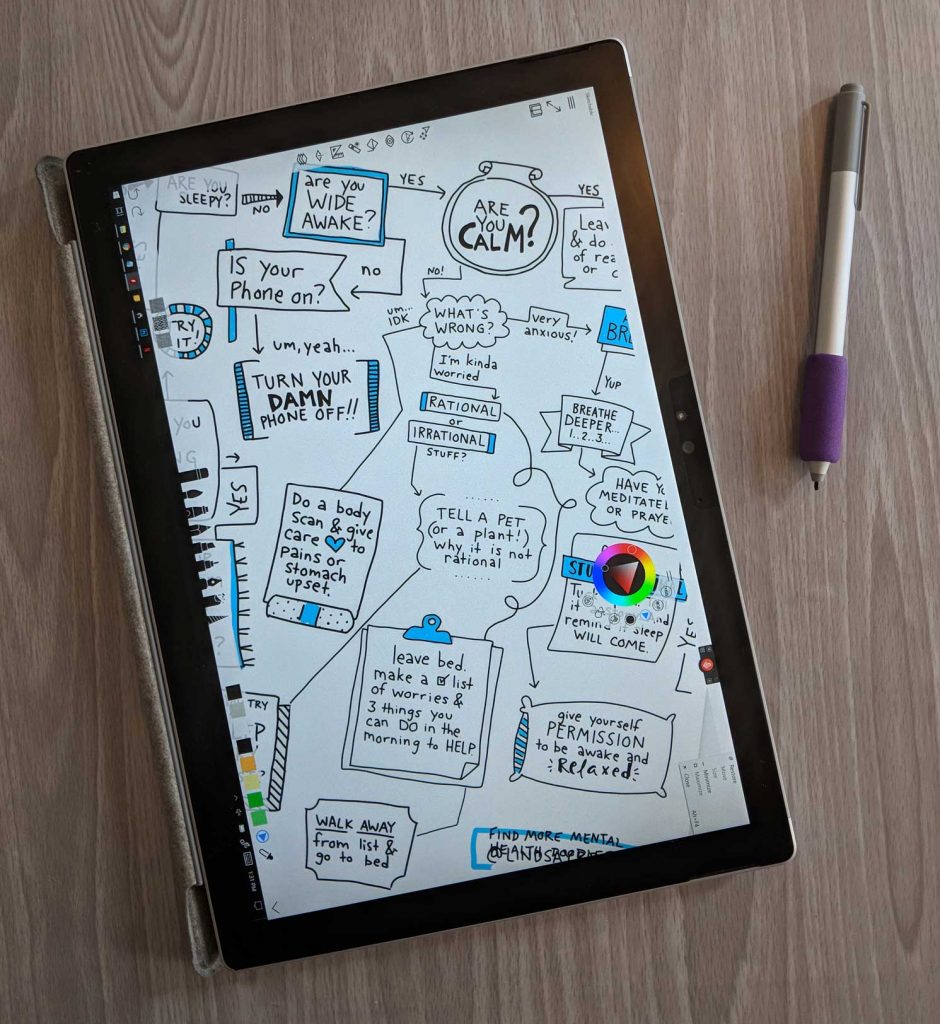 ARE YOU
SLEEPY?
NO
are you
WIDE
AWAKE?
YES
ARE
YOU
CALM?
YES
& do
or
IS your
Phone on?
no
NO!
um...
IDK
WHAT'S
WRONG?
very
anxious!
TRY
IT!
um, yeah...
TURN YOUR
DAMN
PHONE OFF!!
I'm kinda
worried
RATIONAL
or
IRRATIONAL
STUFF?
YUP
BREATHE
DEEPER...
1...2...3...
YOU
YES
Do a body
Scan & give
care to
Pains or
Stomach
upset.
TELL A PET
(or a plant!)
why it is not
rational
HAVE
OR
it
remind it sleep
WILL COME.
leave bed.
make a list
of worries &
3 things you
can DO in the
morning to HELP
give yourself
PERMISSION
to be awake and
Relaxed
TRY
WALK AWAY
from list &
go to bed
FIND MORE MENTAL
HEALTH
Restore
Move
Size
Minimize
Maximize
Close
Alt+F4
1:31 PM